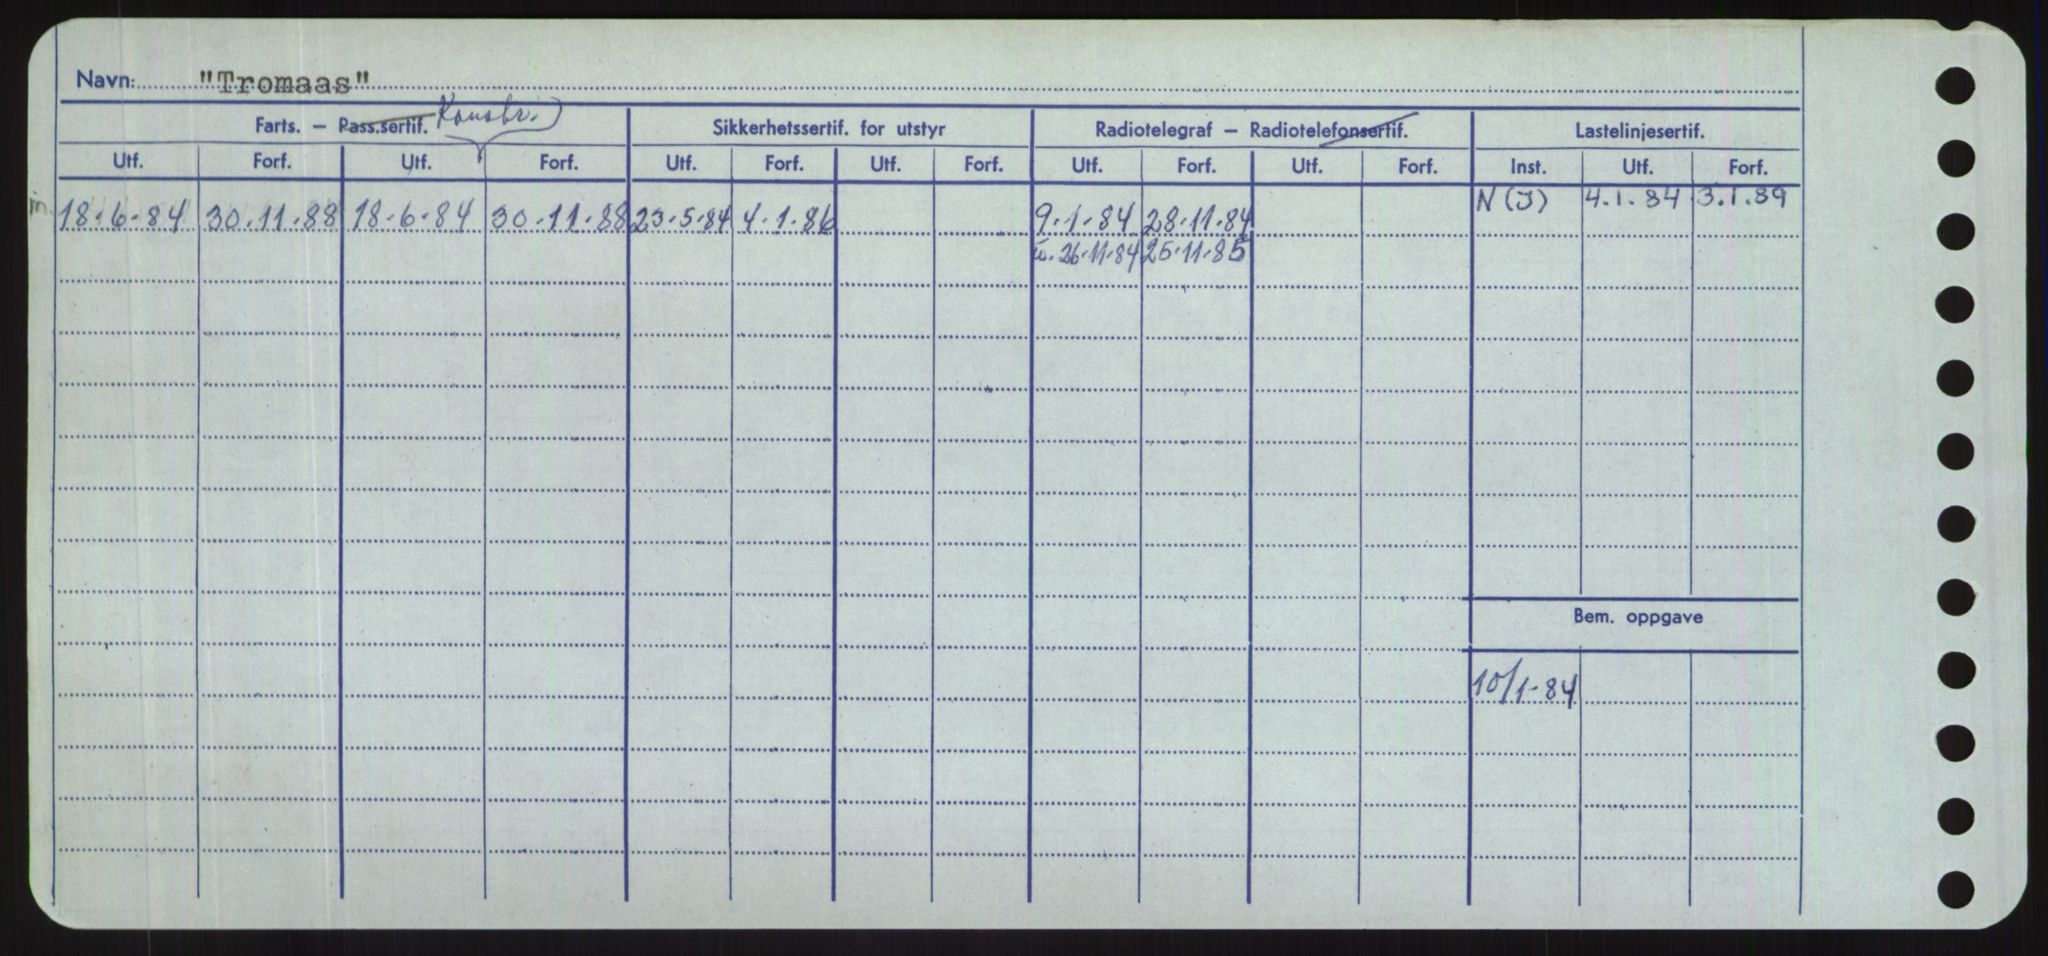 Navn: "Tromaas"
Farts. – Pass.sertif. Konstr. Sikkerhetssertif. for utstyr Radiotelegraf – Radiotelefonsertif. Lastelinjesertif.
Utf. Forf. Utf. Forf. Utf. Forf. Utf. Forf. Utf. Forf. Utf. Forf. Inst. Utf. Forf.
N (I) 4.1.84 3.1.89
m. 18.6.84 30.11.88 18.6.84 30.11.88 23.5.84 4.1.86 9.1.84 28.11.84
26.11.84 25.11.85
Bem. oppgave
10/1-84